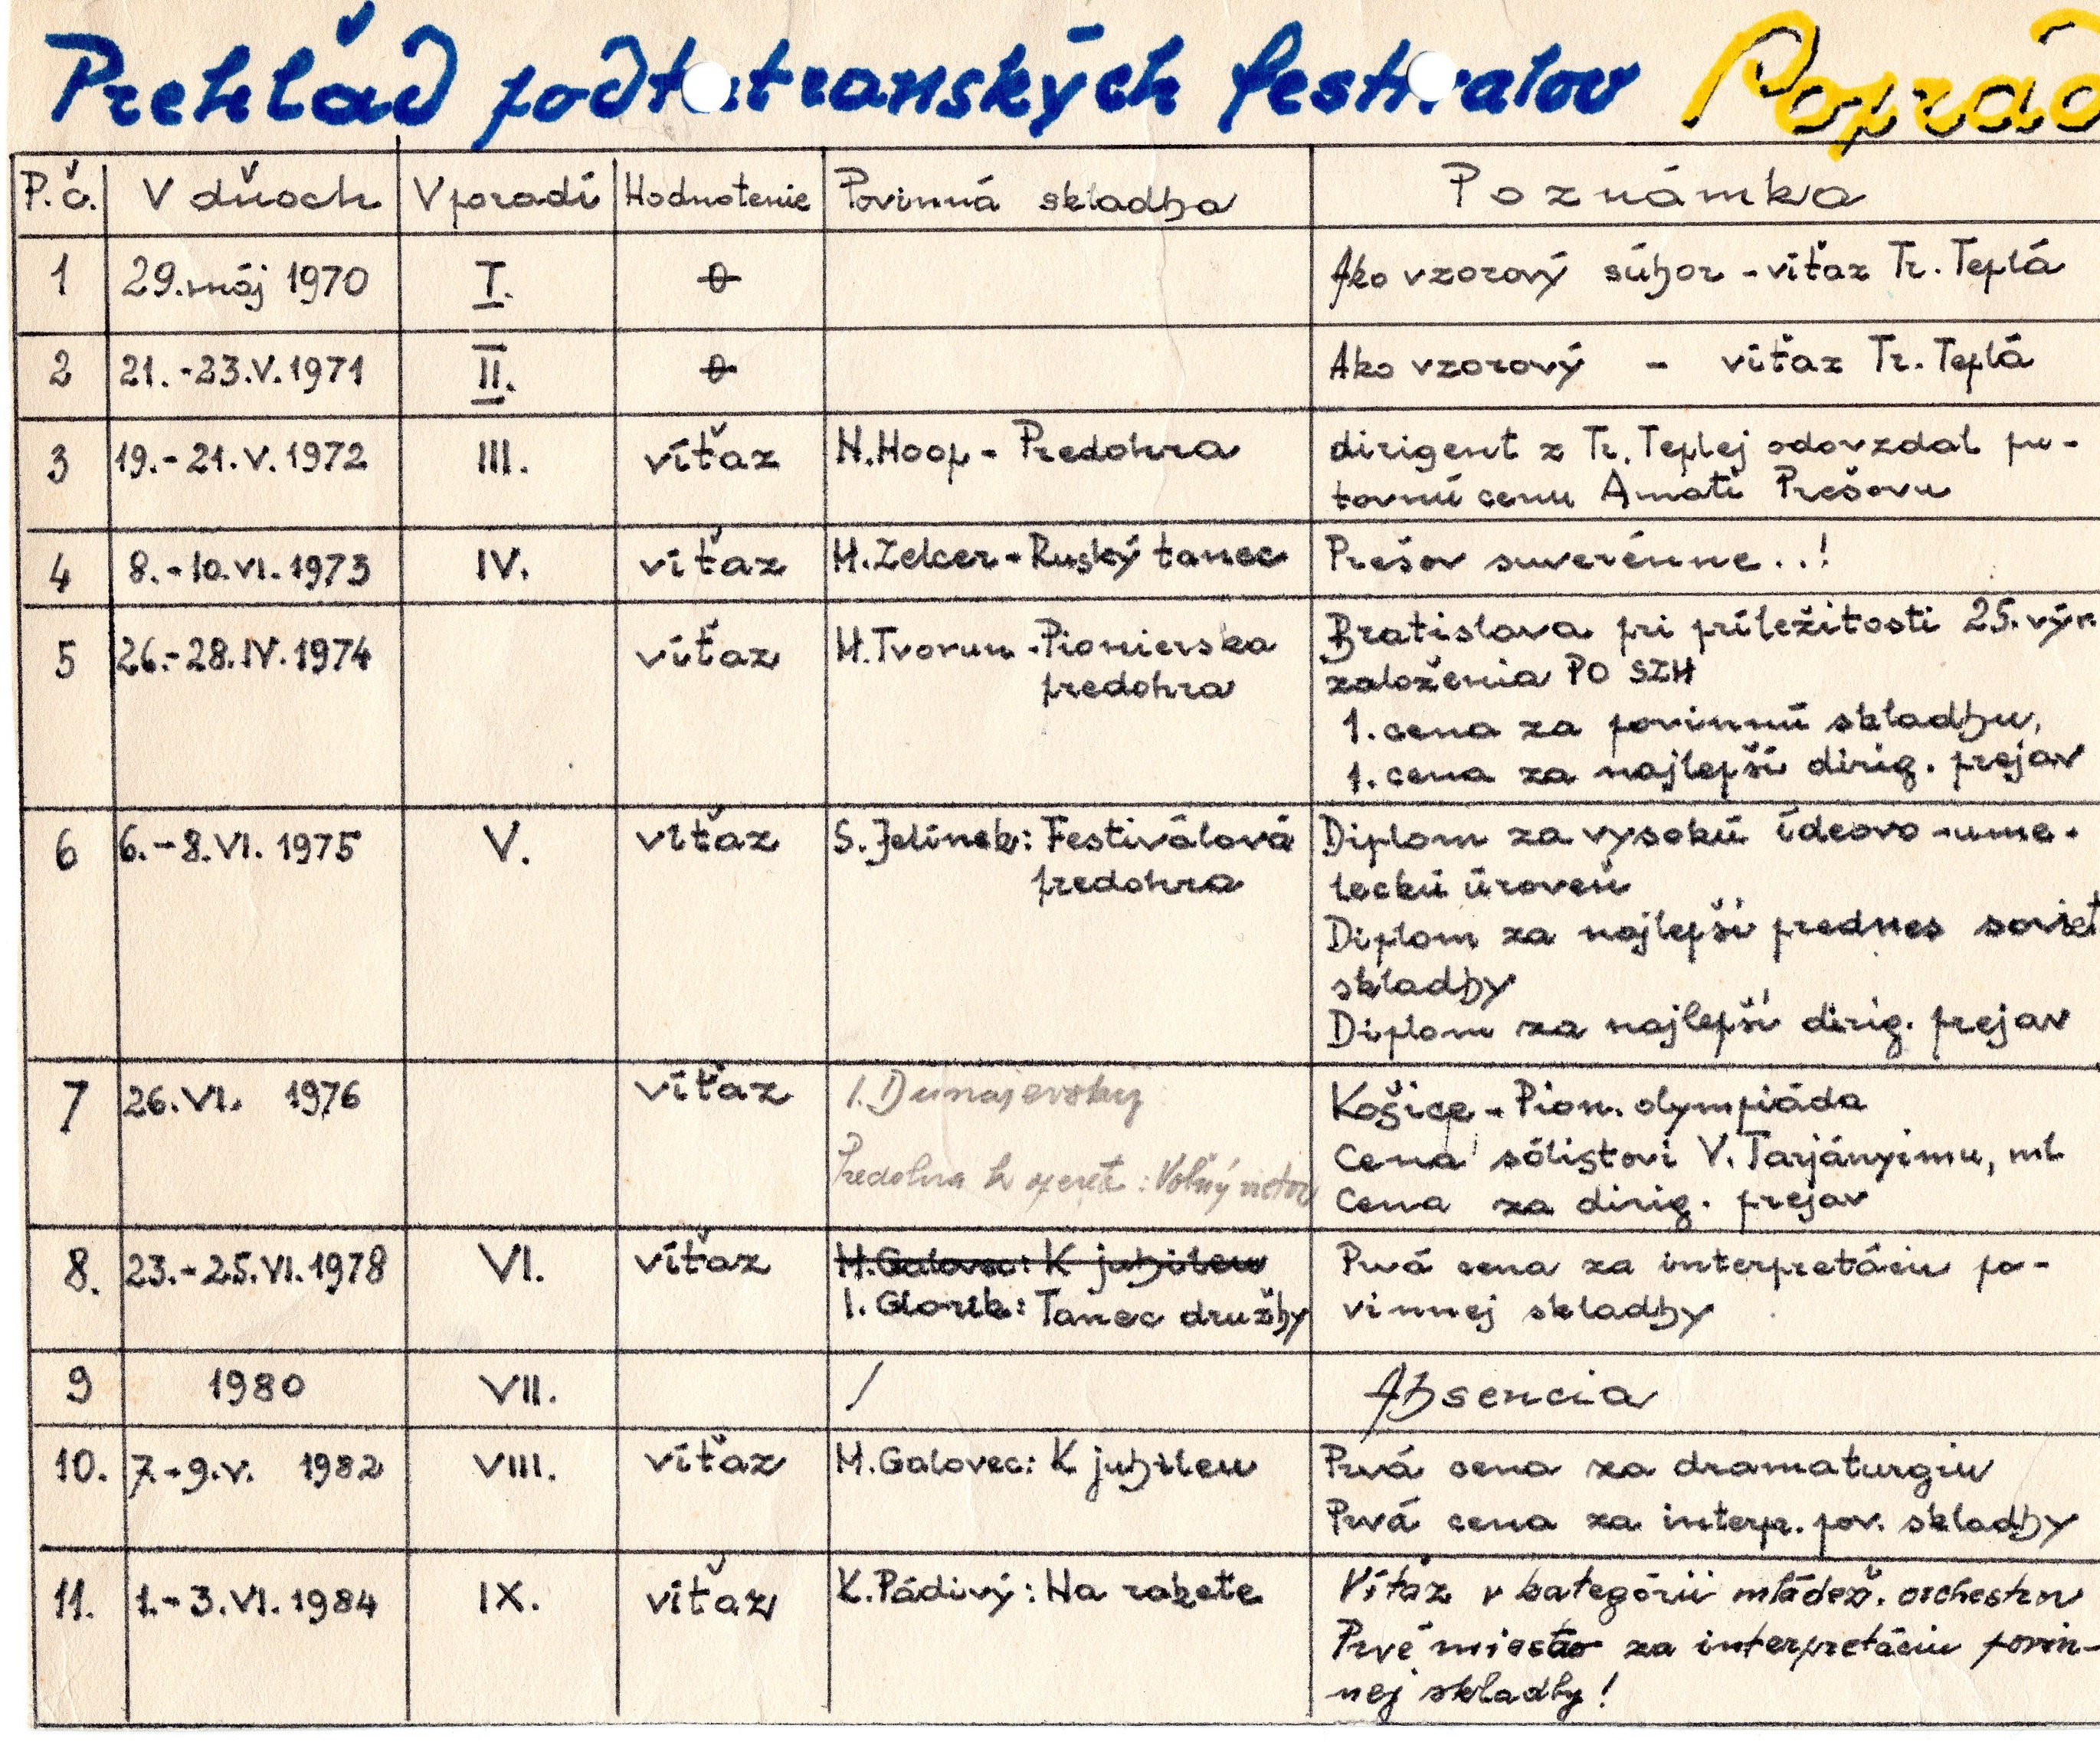 Prehľad podtatranských festivalov Poprad
P.č. V dňoch V poradí Hodnotenie Povinná skladba Poznámka
1 29.máj 1970 I. 0 Ako vzorový súbor - víťaz Tr. Teplá
2 21.-23.V.1971 II. 0 Ako vzorový - víťaz Tr. Teplá
3 19.-21.V.1972 III. víťaz N.Hoop - Predohra dirigent z Tr. Teplej odovzdal pu-
tovnú cenu Amati Prešovu
4 8.-10.VI.1973 IV. víťaz M.Zelcer - Ruský tanec Prešov suverénne..!
5 26.-28.IV.1974 víťaz M.Tvorun - Pionierska Bratislava pri príležitosti 25.výr
predohra založenia PO SZM
1. cena za povinnú skladbu,
1. cena za najlepší dirig. prejav
6 6.-8.VI.1975 V. víťaz S.Jelínek: Festiválová Diplom za vysokú ídeovo-ume-
predohra leckú úroveň
Diplom za najlepší prednes soviet
skladby
Diplom za najlepší dirig. prejav
7 26.VI. 1976 víťaz I. Dunajevskij Košice - Pion. olympiáda
Predohra k operet.: Voľný vietor Cena sólistovi V. Tarjányimu, ml
Cena za dirig. prejav
8. 23.-25.VI.1978 VI. víťaz M.Galovec: K jubileu Prvá cena za interpretáciu po-
I. Glorík: Tanec družby vinnej skladby
9 1980 VII. / Absencia
10. 7.-9.V. 1982 VIII. víťaz M.Galovec: K jubileu Prvá cena za dramaturgiu
Prvá cena za interp. pov. skladby
11. 1.-3.VI.1984 IX. víťaz K.Pádivý: Na rakete Víťaz v kategórii mládež. orchestrov
Prvé miesto za interpretáciu povin-
nej skladby!